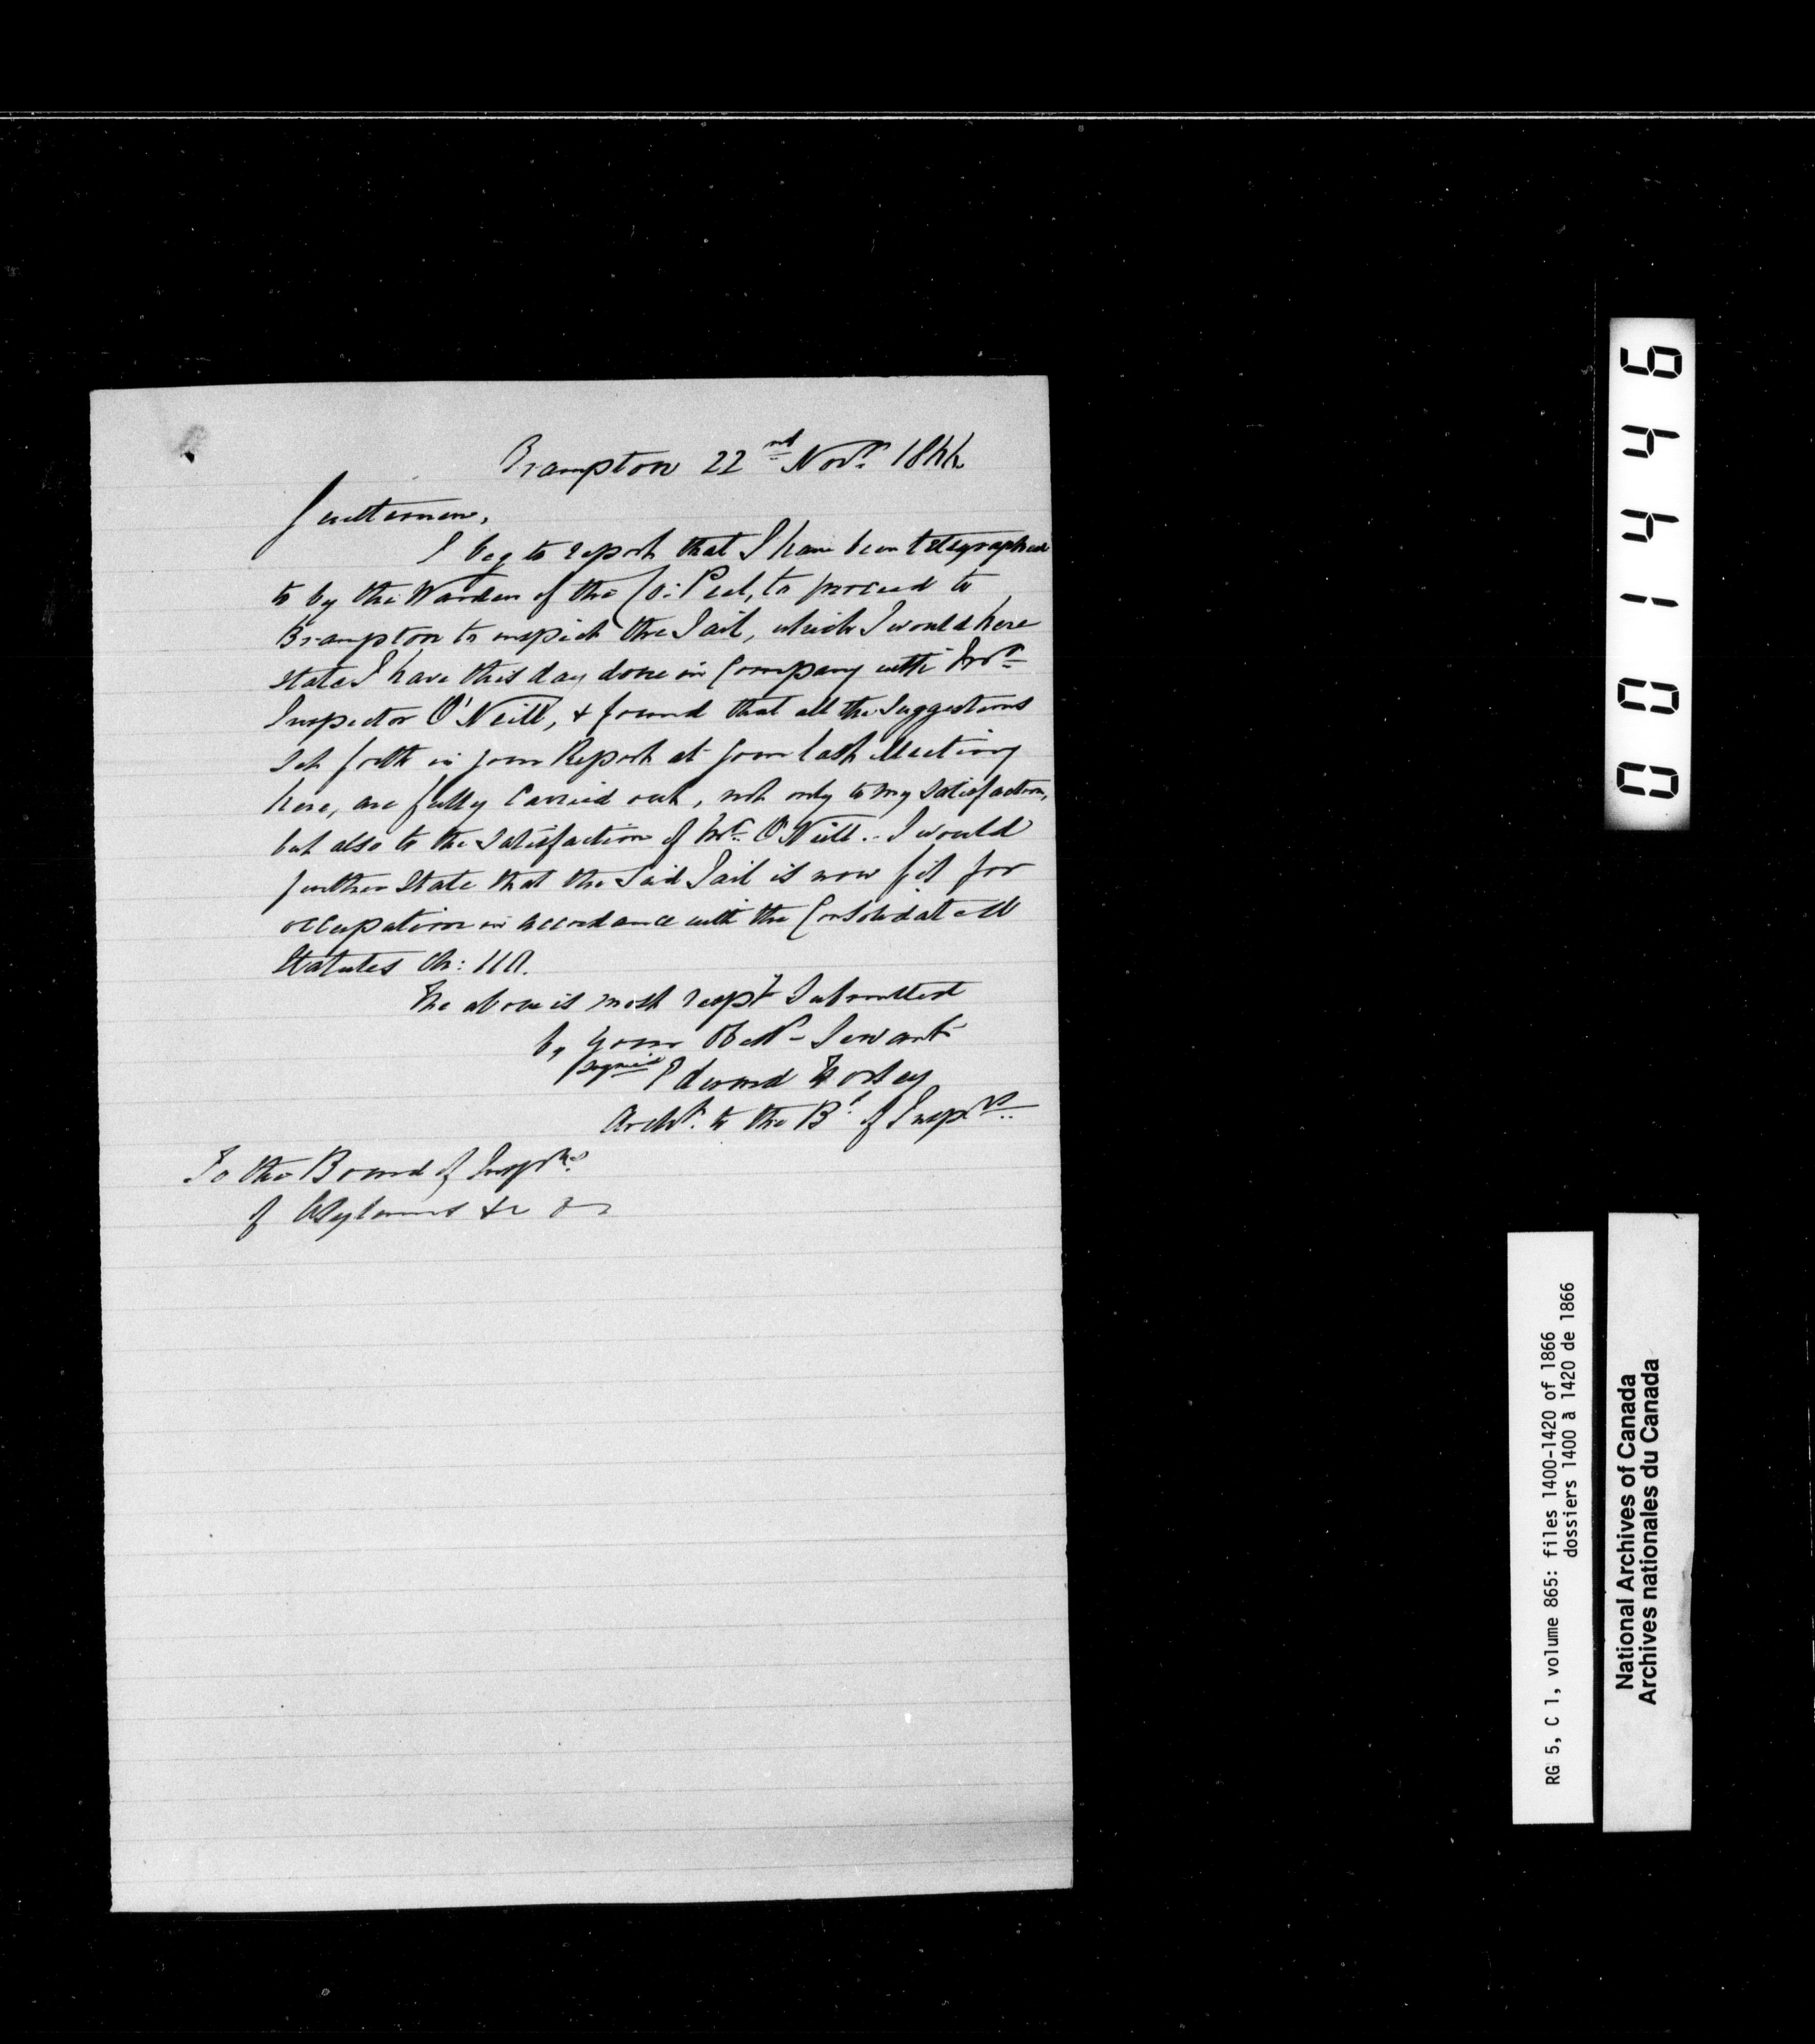 Brampton 22nd Novr. 1866
Gentlemen,
I beg to report that I have been telegraphed
to by the Warden of the Co: Peel, to proceed to
Brampton to inspect the Jail, which I would here
state I have this day done in Company with Mr.
Inspector O'Neill, & found that all the Suggestions
set forth in your Report at your last Meeting
here, are fully Carried out, not only to my satisfaction,
but also to the satisfaction of Mr. O'Neill.. I would
further State that the Said Jail is now fit for
occupation in accordance with the Consolidated
Statutes Ch:
The above is most respy Submitted
by Your Obedt Servant
(signed) Edward
Archt. to the Bd. of Insprs.
To the Board of Insprs.
of Asylums &c
001446
RG 5, C 1, volume 865: files 1400-1420 of 1866
dossiers 1400 à 1420 de 1866
National Archives of Canada
Archives nationales du Canada